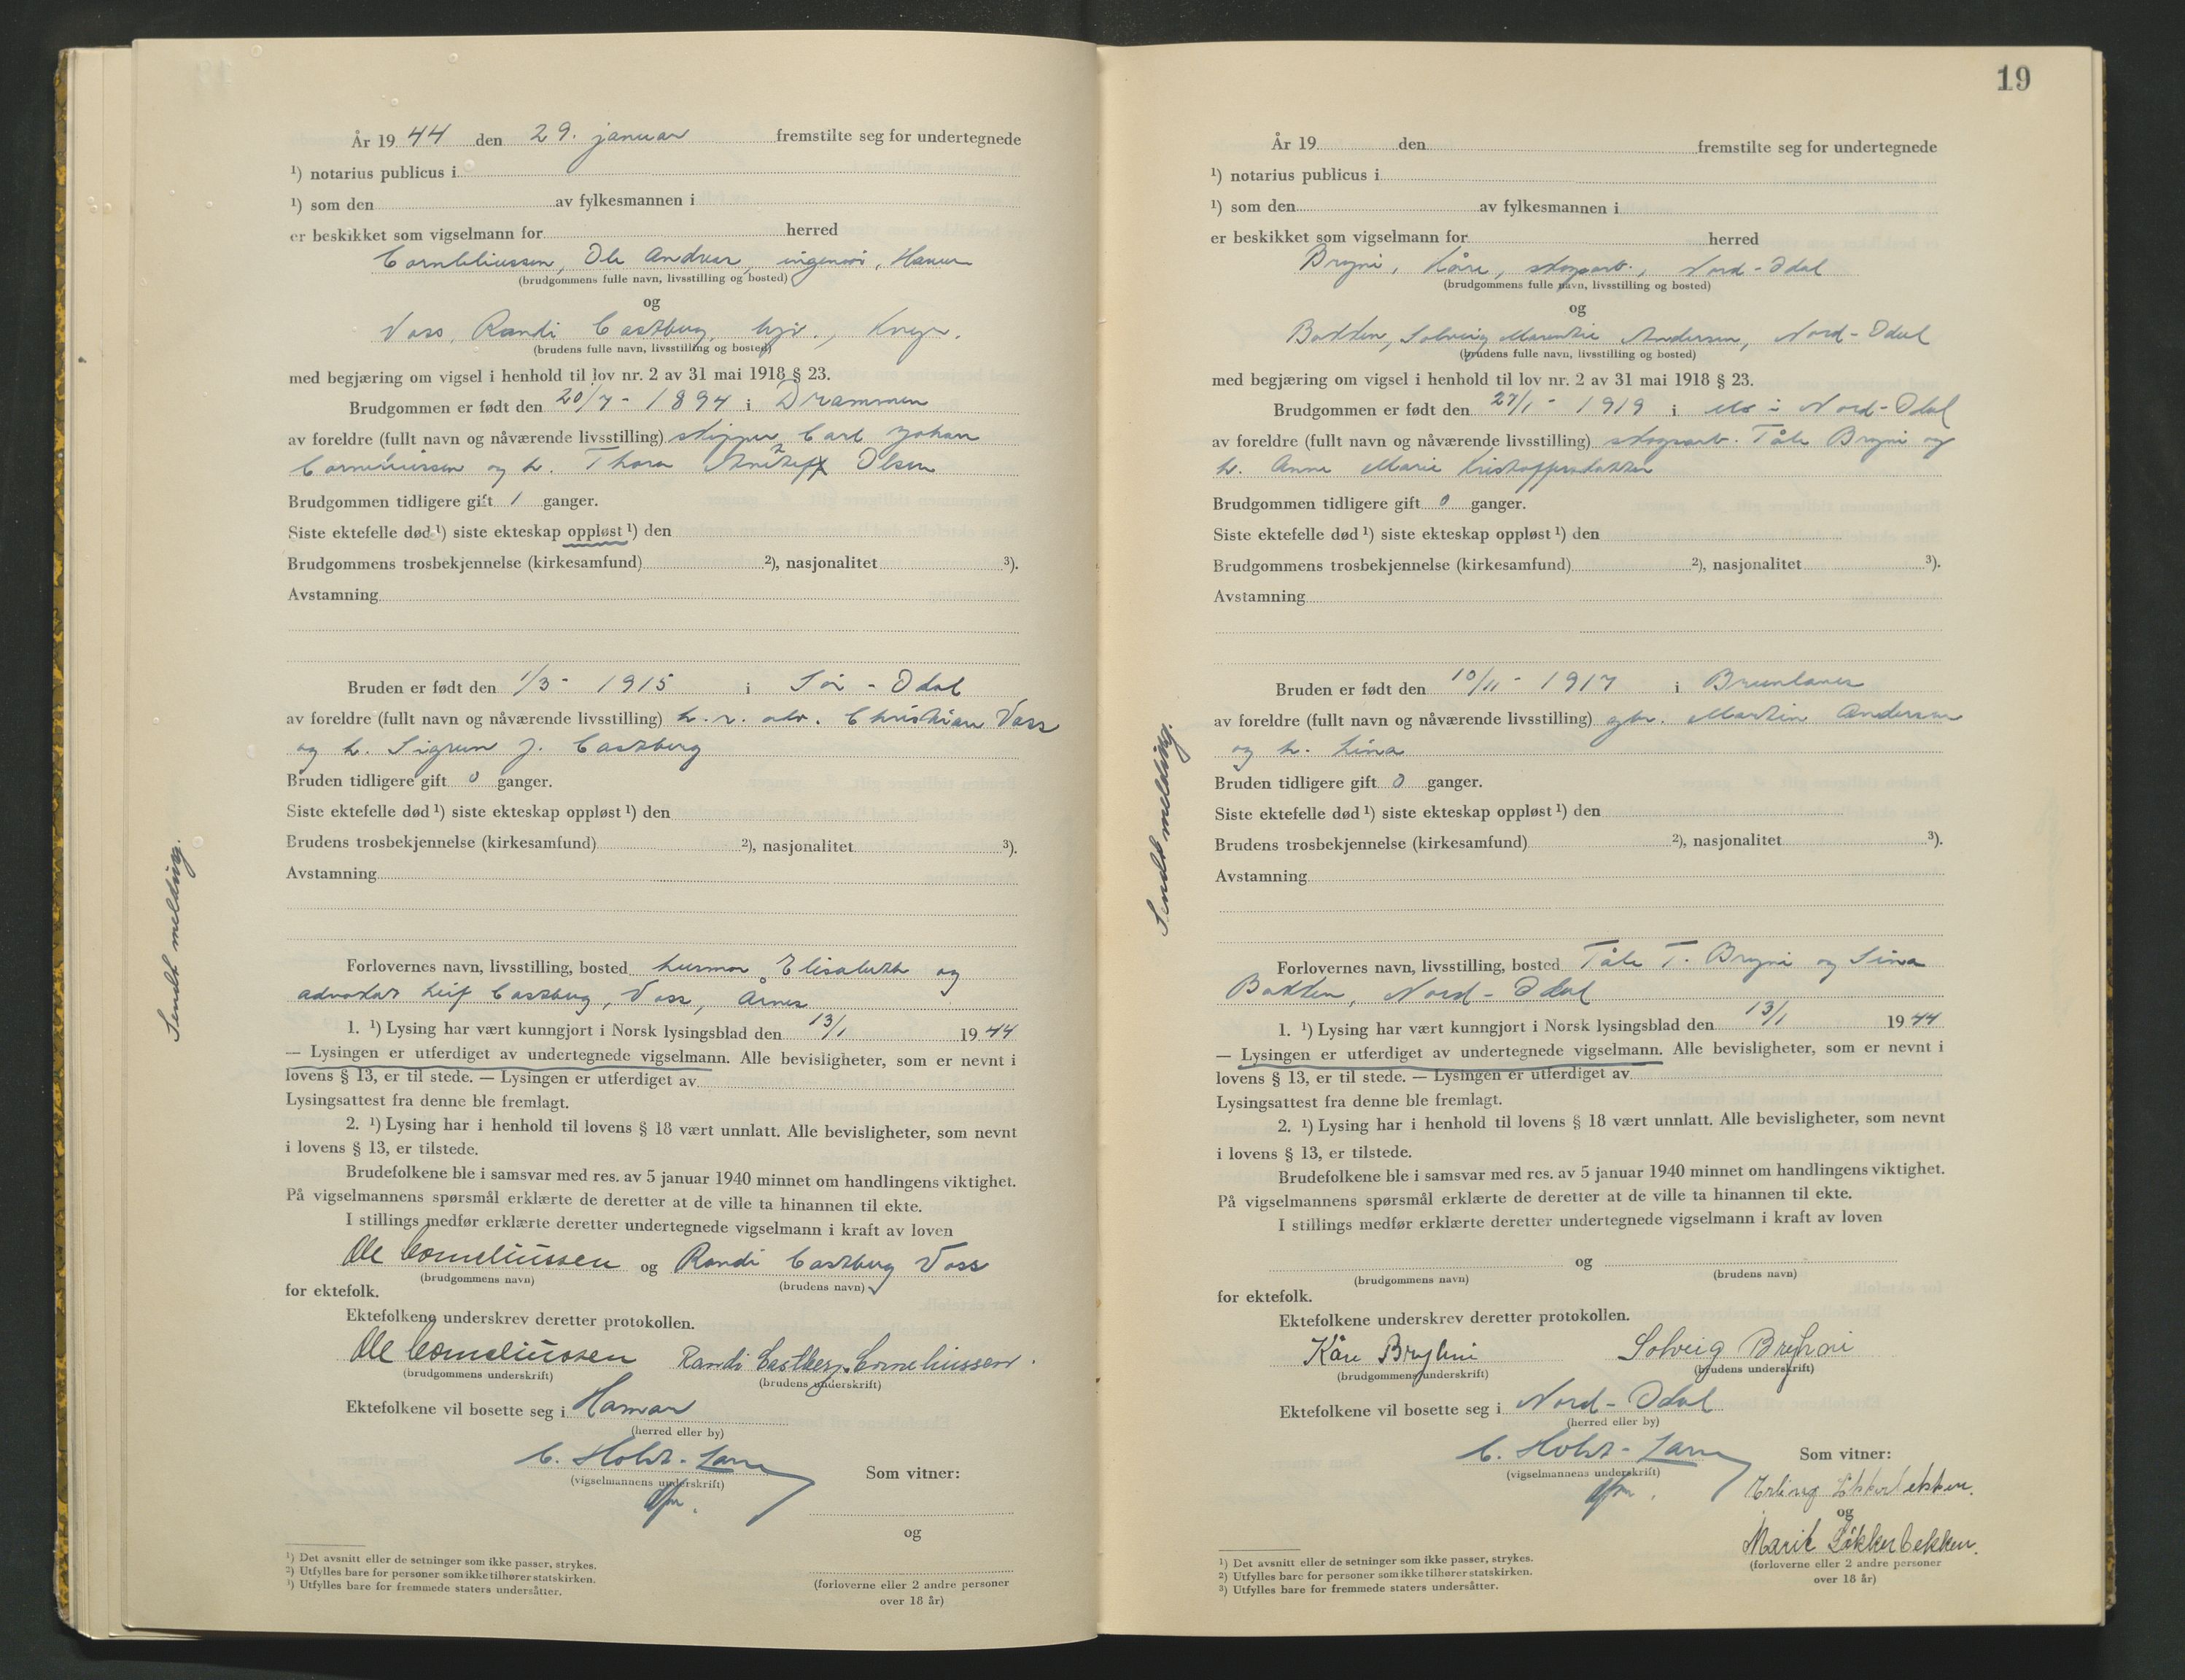 År 19 44 den 29. januar fremstilte seg for undertegnede
¹) notarius publicus i
¹) som den av fylkesmannen i
er beskikket som vigselmann for herred
Corneliussen, Ole Andreas, ingeniør, Hamar
(brudgommens fulle navn, livsstilling og bosted)
og
Voss, Randi Castberg, hjv.,
(brudens fulle navn, livsstilling og bosted)
med begjæring om vigsel i henhold til lov nr. 2 av 31 mai 1918 § 23.
Brudgommen er født den 20/7 - 1894 i Drammen
av foreldre (fullt navn og nåværende livsstilling) skipper Carl Johan
Corneliussen og h. Thora Olsen
Brudgommen tidligere gift 1 ganger.
Siste ektefelle død ¹) siste ekteskap oppløst ¹) den
Brudgommens trosbekjennelse (kirkesamfund) ²), nasjonalitet ³).
Avstamning
Bruden er født den 1/3 - 1915 i Sør - Odal
av foreldre (fullt navn og nåværende livsstilling) h. r. adv. Christian Voss
og h. Sigrun J. Castberg
Bruden tidligere gift 0 ganger.
Siste ektefelle død ¹) siste ekteskap oppløst ¹) den
Brudens trosbekjennelse (kirkesamfund) ²), nasjonalitet ³).
Avstamning
Forlovernes navn, livsstilling, bosted husmor Elisabeth og
advokat Leif Castberg, Voss, Årnes
1. ¹) Lysing har vært kunngjort i Norsk lysingsblad den 13/1 19 44
— Lysingen er utferdiget av undertegnede vigselmann. Alle bevisligheter, som er nevnt i
lovens § 13, er til stede. — Lysingen er utferdiget av
Lysingsattest fra denne ble fremlagt.
2. ¹) Lysing har i henhold til lovens § 18 vært unnlatt. Alle bevisligheter, som nevnt
i lovens § 13, er tilstede.
Brudefolkene ble i samsvar med res. av 5 januar 1940 minnet om handlingens viktighet.
På vigselmannens spørsmål erklærte de deretter at de ville ta hinannen til ekte.
I stillings medfør erklærte deretter undertegnede vigselmann i kraft av loven
Ole Corneliussen og Randi Castberg Voss
(brudgommens navn) (brudens navn)
for ektefolk.
Ektefolkene underskrev deretter protokollen.
Ole Corneliussen Randi Castberg Corneliussen.
(brudgommens underskrift) (brudens underskrift)
Ektefolkene vil bosette seg i Hamar
(herred eller by)
C. Holst-Larsen
(vigselmannens underskrift)
Som vitner:
og
(forloverne eller 2 andre personer
over 18 år)
¹) Det avsnitt eller de setninger som ikke passer, strykes.
²) Utfylles bare for personer som ikke tilhører statskirken.
³) Utfylles bare for fremmede staters undersåtter.
Sendt melding.
19
År 19 den fremstilte seg for undertegnede
¹) notarius publicus i
¹) som den av fylkesmannen i
er beskikket som vigselmann for herred
Bryni, Kåre, skogsarb., Nord-Odal
(brudgommens fulle navn, livsstilling og bosted)
og
Bakken, Solveig Andersen, Nord-Odal
(brudens fulle navn, livsstilling og bosted)
med begjæring om vigsel i henhold til lov nr. 2 av 31 mai 1918 § 23.
Brudgommen er født den 27/1 - 1919 i Mo i Nord-Odal
av foreldre (fullt navn og nåværende livsstilling) skogsarb. Tåle Bryni og
h. Anne Marie Kristoffersdatter
Brudgommen tidligere gift 0 ganger.
Siste ektefelle død ¹) siste ekteskap oppløst ¹) den
Brudgommens trosbekjennelse (kirkesamfund) ²), nasjonalitet ³).
Avstamning
Bruden er født den 10/11 - 1917 i Brunlanes
av foreldre (fullt navn og nåværende livsstilling) gbr. Martin Andersen
og h. Lina
Bruden tidligere gift 0 ganger.
Siste ektefelle død ¹) siste ekteskap oppløst ¹) den
Brudens trosbekjennelse (kirkesamfund) ²), nasjonalitet ³).
Avstamning
Forlovernes navn, livsstilling, bosted Tåle T. Bryni og Sina
Bakken, Nord-Odal
1. ¹) Lysing har vært kunngjort i Norsk lysingsblad den 13/1 19 44
— Lysingen er utferdiget av undertegnede vigselmann. Alle bevisligheter, som er nevnt i
lovens § 13, er til stede. — Lysingen er utferdiget av
Lysingsattest fra denne ble fremlagt.
2. ¹) Lysing har i henhold til lovens § 18 vært unnlatt. Alle bevisligheter, som nevnt
i lovens § 13, er tilstede.
Brudefolkene ble i samsvar med res. av 5 januar 1940 minnet om handlingens viktighet.
På vigselmannens spørsmål erklærte de deretter at de ville ta hinannen til ekte.
I stillings medfør erklærte deretter undertegnede vigselmann i kraft av loven
og
(brudgommens navn) (brudens navn)
for ektefolk.
Ektefolkene underskrev deretter protokollen.
Kåre Bryhni Solveig Bryhni
(brudgommens underskrift) (brudens underskrift)
Ektefolkene vil bosette seg i Nord-Odal
(herred eller by)
C. Holst-Larsen
(vigselmannens underskrift)
Som vitner:
Erling Løkkerbekken.
og
Marit Løkkerbekken.
(forloverne eller 2 andre personer
over 18 år)
¹) Det avsnitt eller de setninger som ikke passer, strykes.
²) Utfylles bare for personer som ikke tilhører statskirken.
³) Utfylles bare for fremmede staters undersåtter.
Sendt melding.